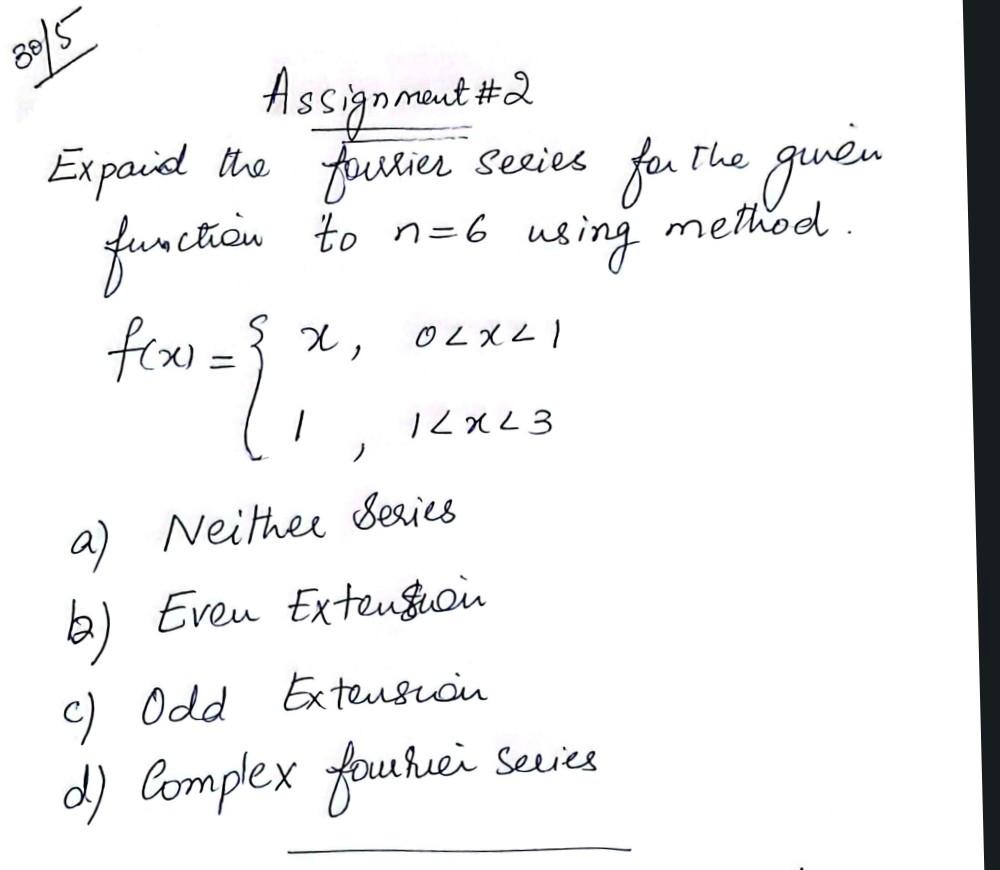 30/5
Assignment #2
Expand the fourier series for the given
function to n=6 using method.
f(x) = { x, 0<x<1
1, 1<x<3
a) Neither Series
b) Even Extension
c) Odd Extension
d) Complex fourier series